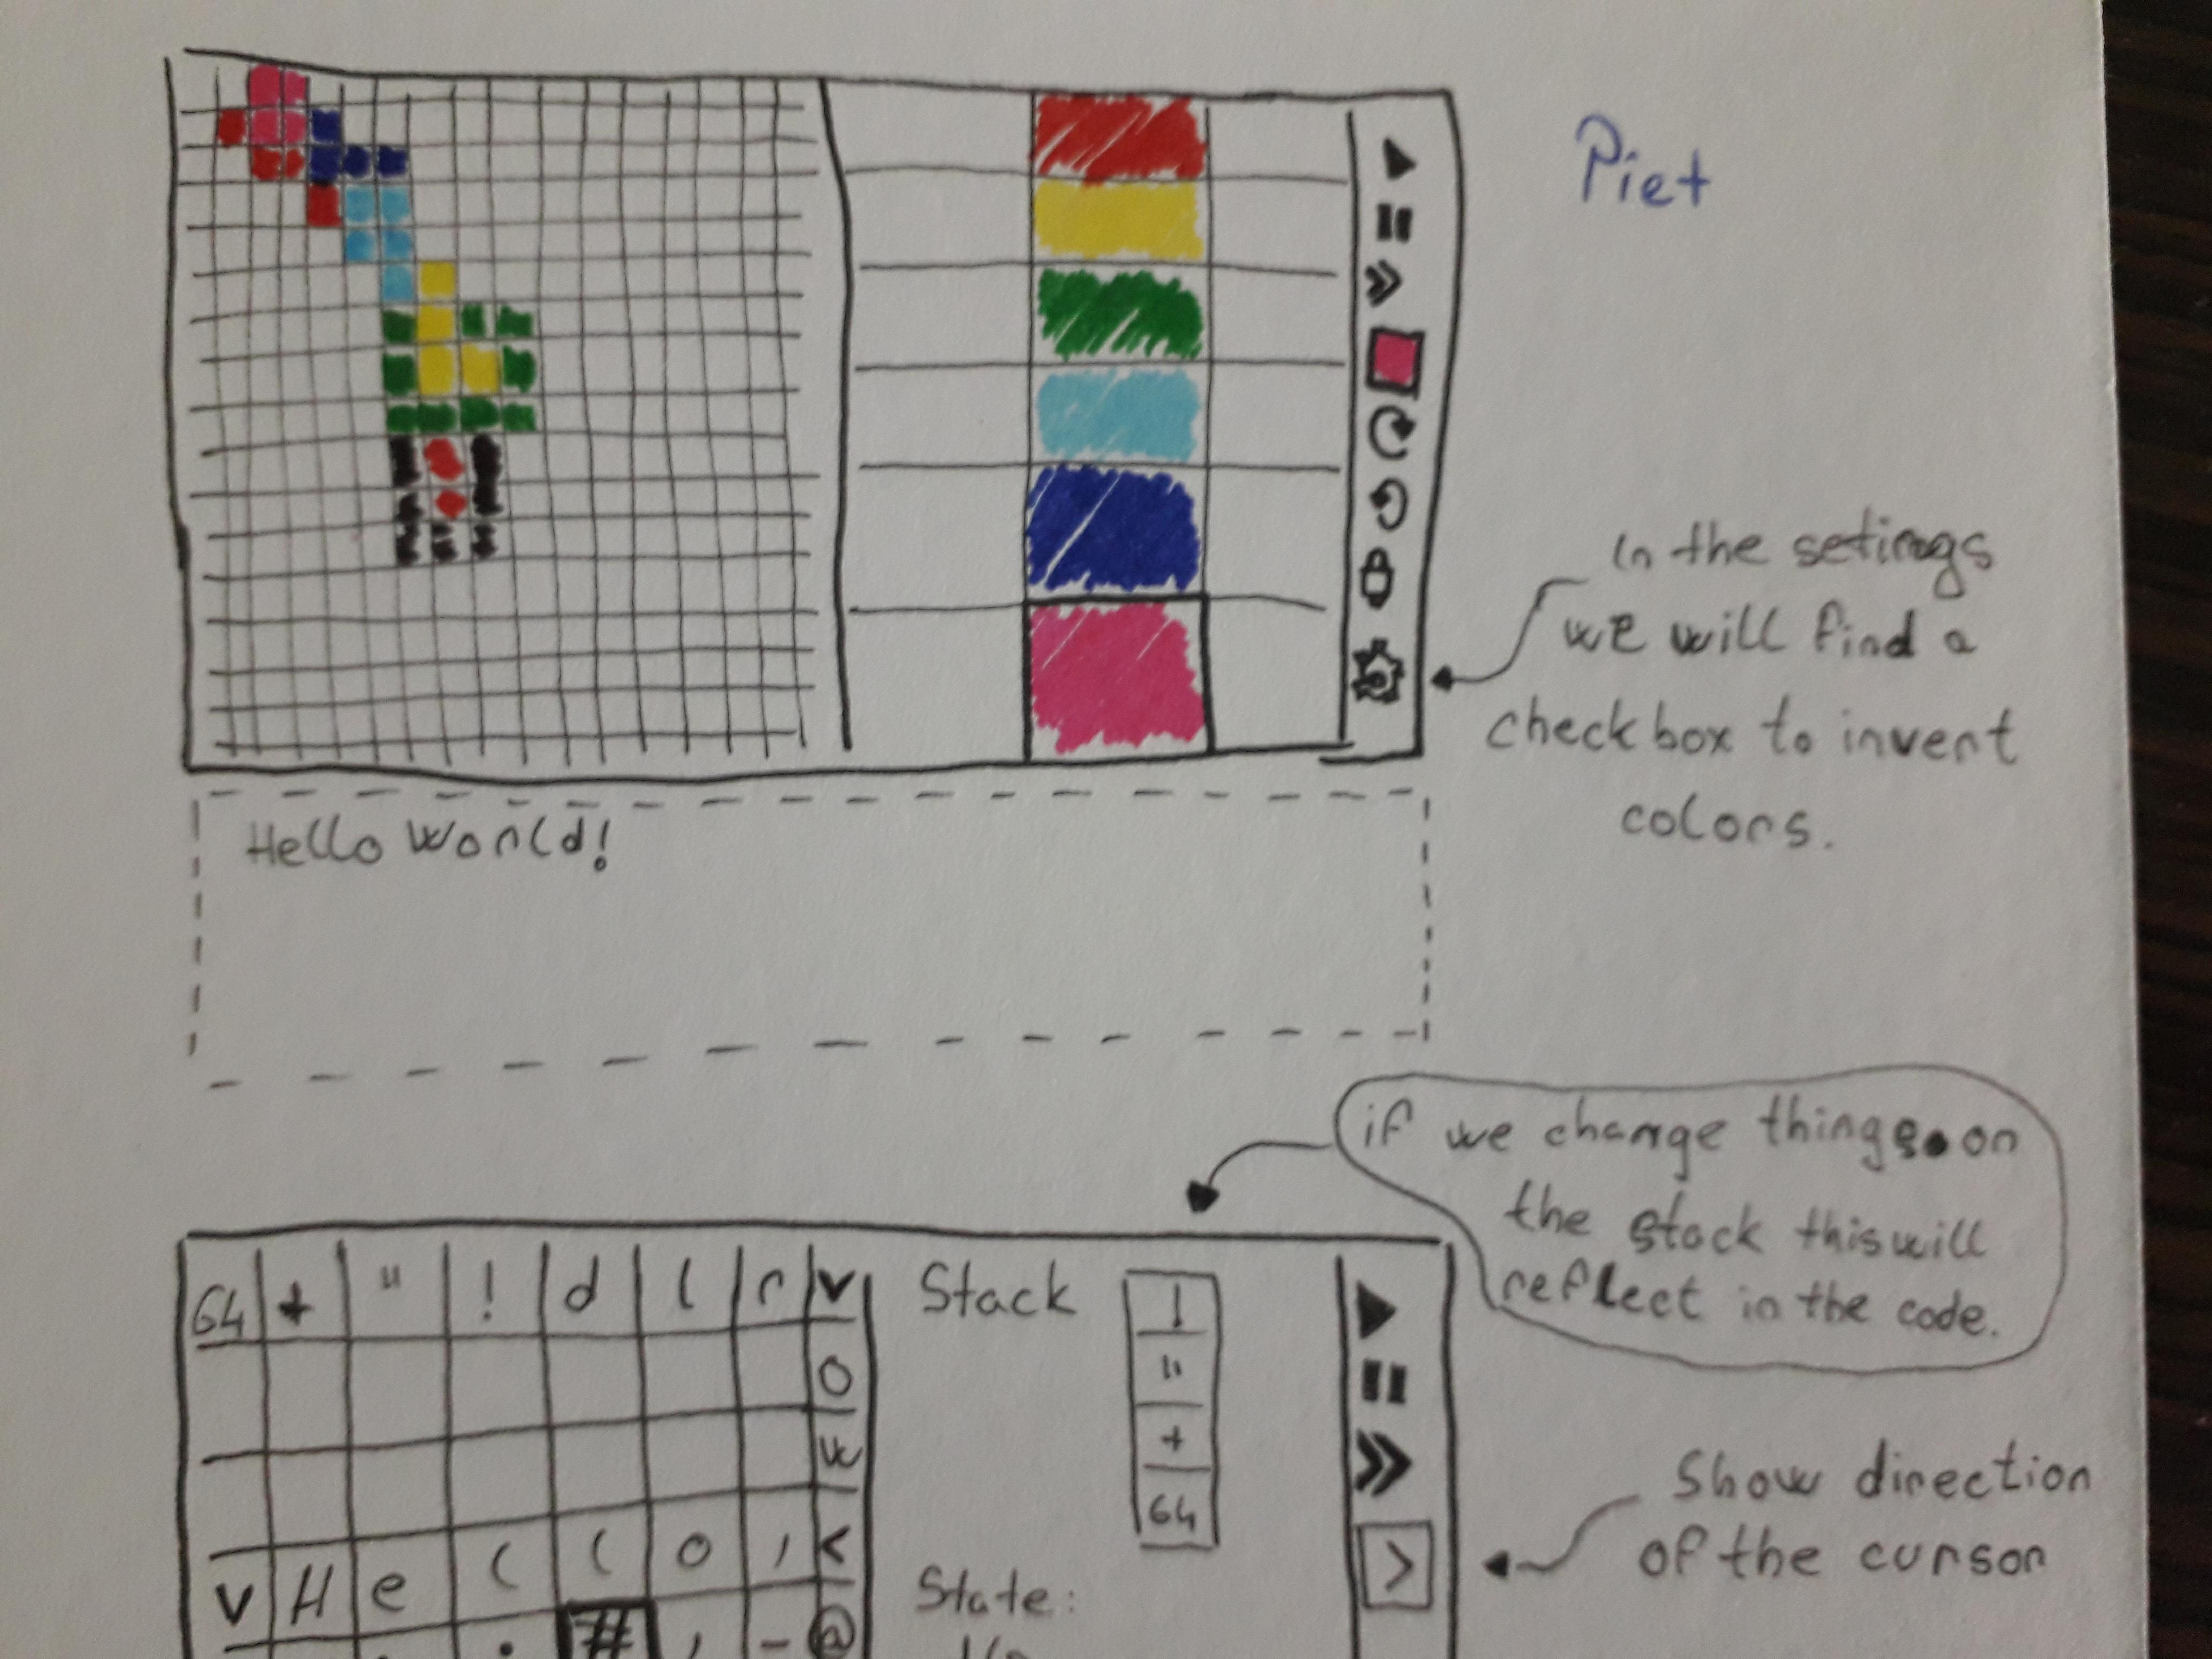 Piet
In the setings
we will find a
checkbox to invert
colors.
Hello World!
if we change things on
the stack this will
reflect in the code.
64 + " ! d l r v
Stack
!
"
+
64
o
w
v H e l l o , <
State:
# , - @
>
Show direction
of the cursor